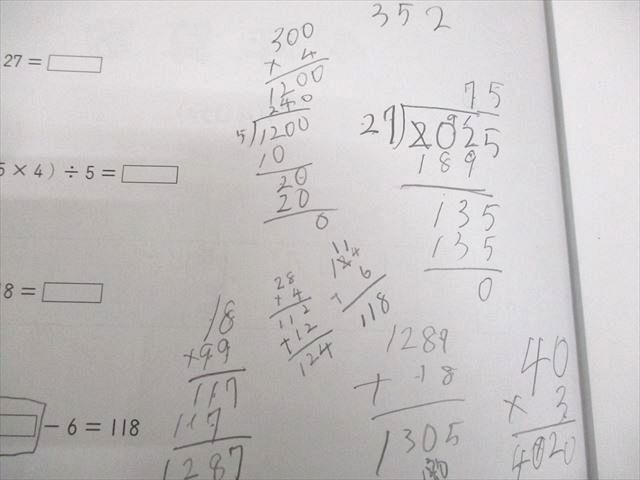 352
27 = 
5 × 4 ) ÷ 5 = 
8 = 
− 6 = 118
300
× 4
1200
240
5)1200
10
20
20
0
75
27)2025
189
135
135
0
28
+ 4
112
+12
124
11
124
+ 6
118
18
×99
117
117
1287
1289
+ 18
1305
40
× 3
4020